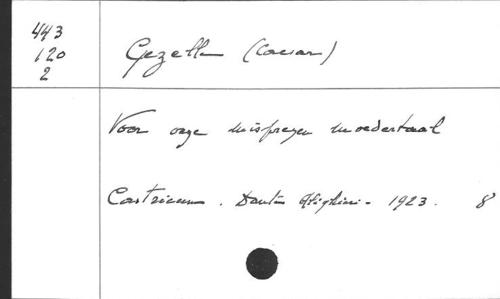 443
120
2
Gezelle (Caesar)
Voor onze misprezen moedertaal
Castricum. Dante Alighieri - 1923. 8